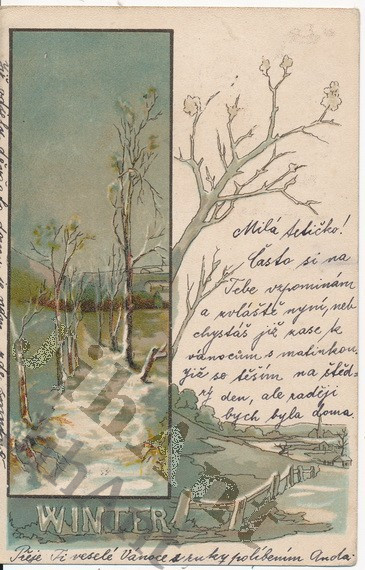 Milá tetičko!
Často si na
Tebe vzpomínám
a zvláště nyní, neb
chystáš již zase k
vánocům s matinkou.
Již se těším na štěd-
rý den, ale raději
bych byla doma.
WINTER
Přeje Ti veselé Vánoce z ruky políbením Anda.